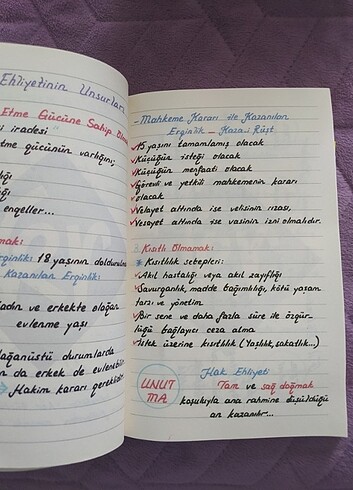 Ehliyetinin Unsurları
Etme Gücüne Sahip Olma
i iradesi
tme gücünün varlığını;
lığı
ğı
engeller...
mak:
erginlik: 18 yaşının doldurulma
Kazanılan Erginlik:
Kadın ve erkekte olağan
evlenme yaşı
lağanüstü durumlarda
n da erkek de evlenebilir
→ Hakim kararı gereklidir
- Mahkeme Kararı ile Kazanılan
Erginlik - Kazai Rüşt
✓ 15 yaşını tamamlamış olacak
✓ Küçüğün isteği olacak
✓ Küçüğün menfaati olacak
✓ Görevli ve yetkili mahkemenin kararı
olacak
✓ Velayet altında ise velisinin rızası,
✓ Vesayet altında ise vasinin izni olmalıdır.
3. Kısıtlı Olmamak:
* Kısıtlılık sebepleri:
✓ Akıl hastalığı veya akıl zayıflığı
✓ Savurganlık, madde bağımlılığı, kötü yaşam
tarzı ve yönetim
✓ Bir sene ve daha fazla süre ile özgür-
lüğü bağlayıcı ceza alma
✓ İstek üzerine kısıtlılık (Yaşlılık, sakatlık...)
UNUT
MA
Hak Ehliyeti
Tam ve sağ doğmak
koşukıyla ana rahmine düşüldüğü
an kazanılır...